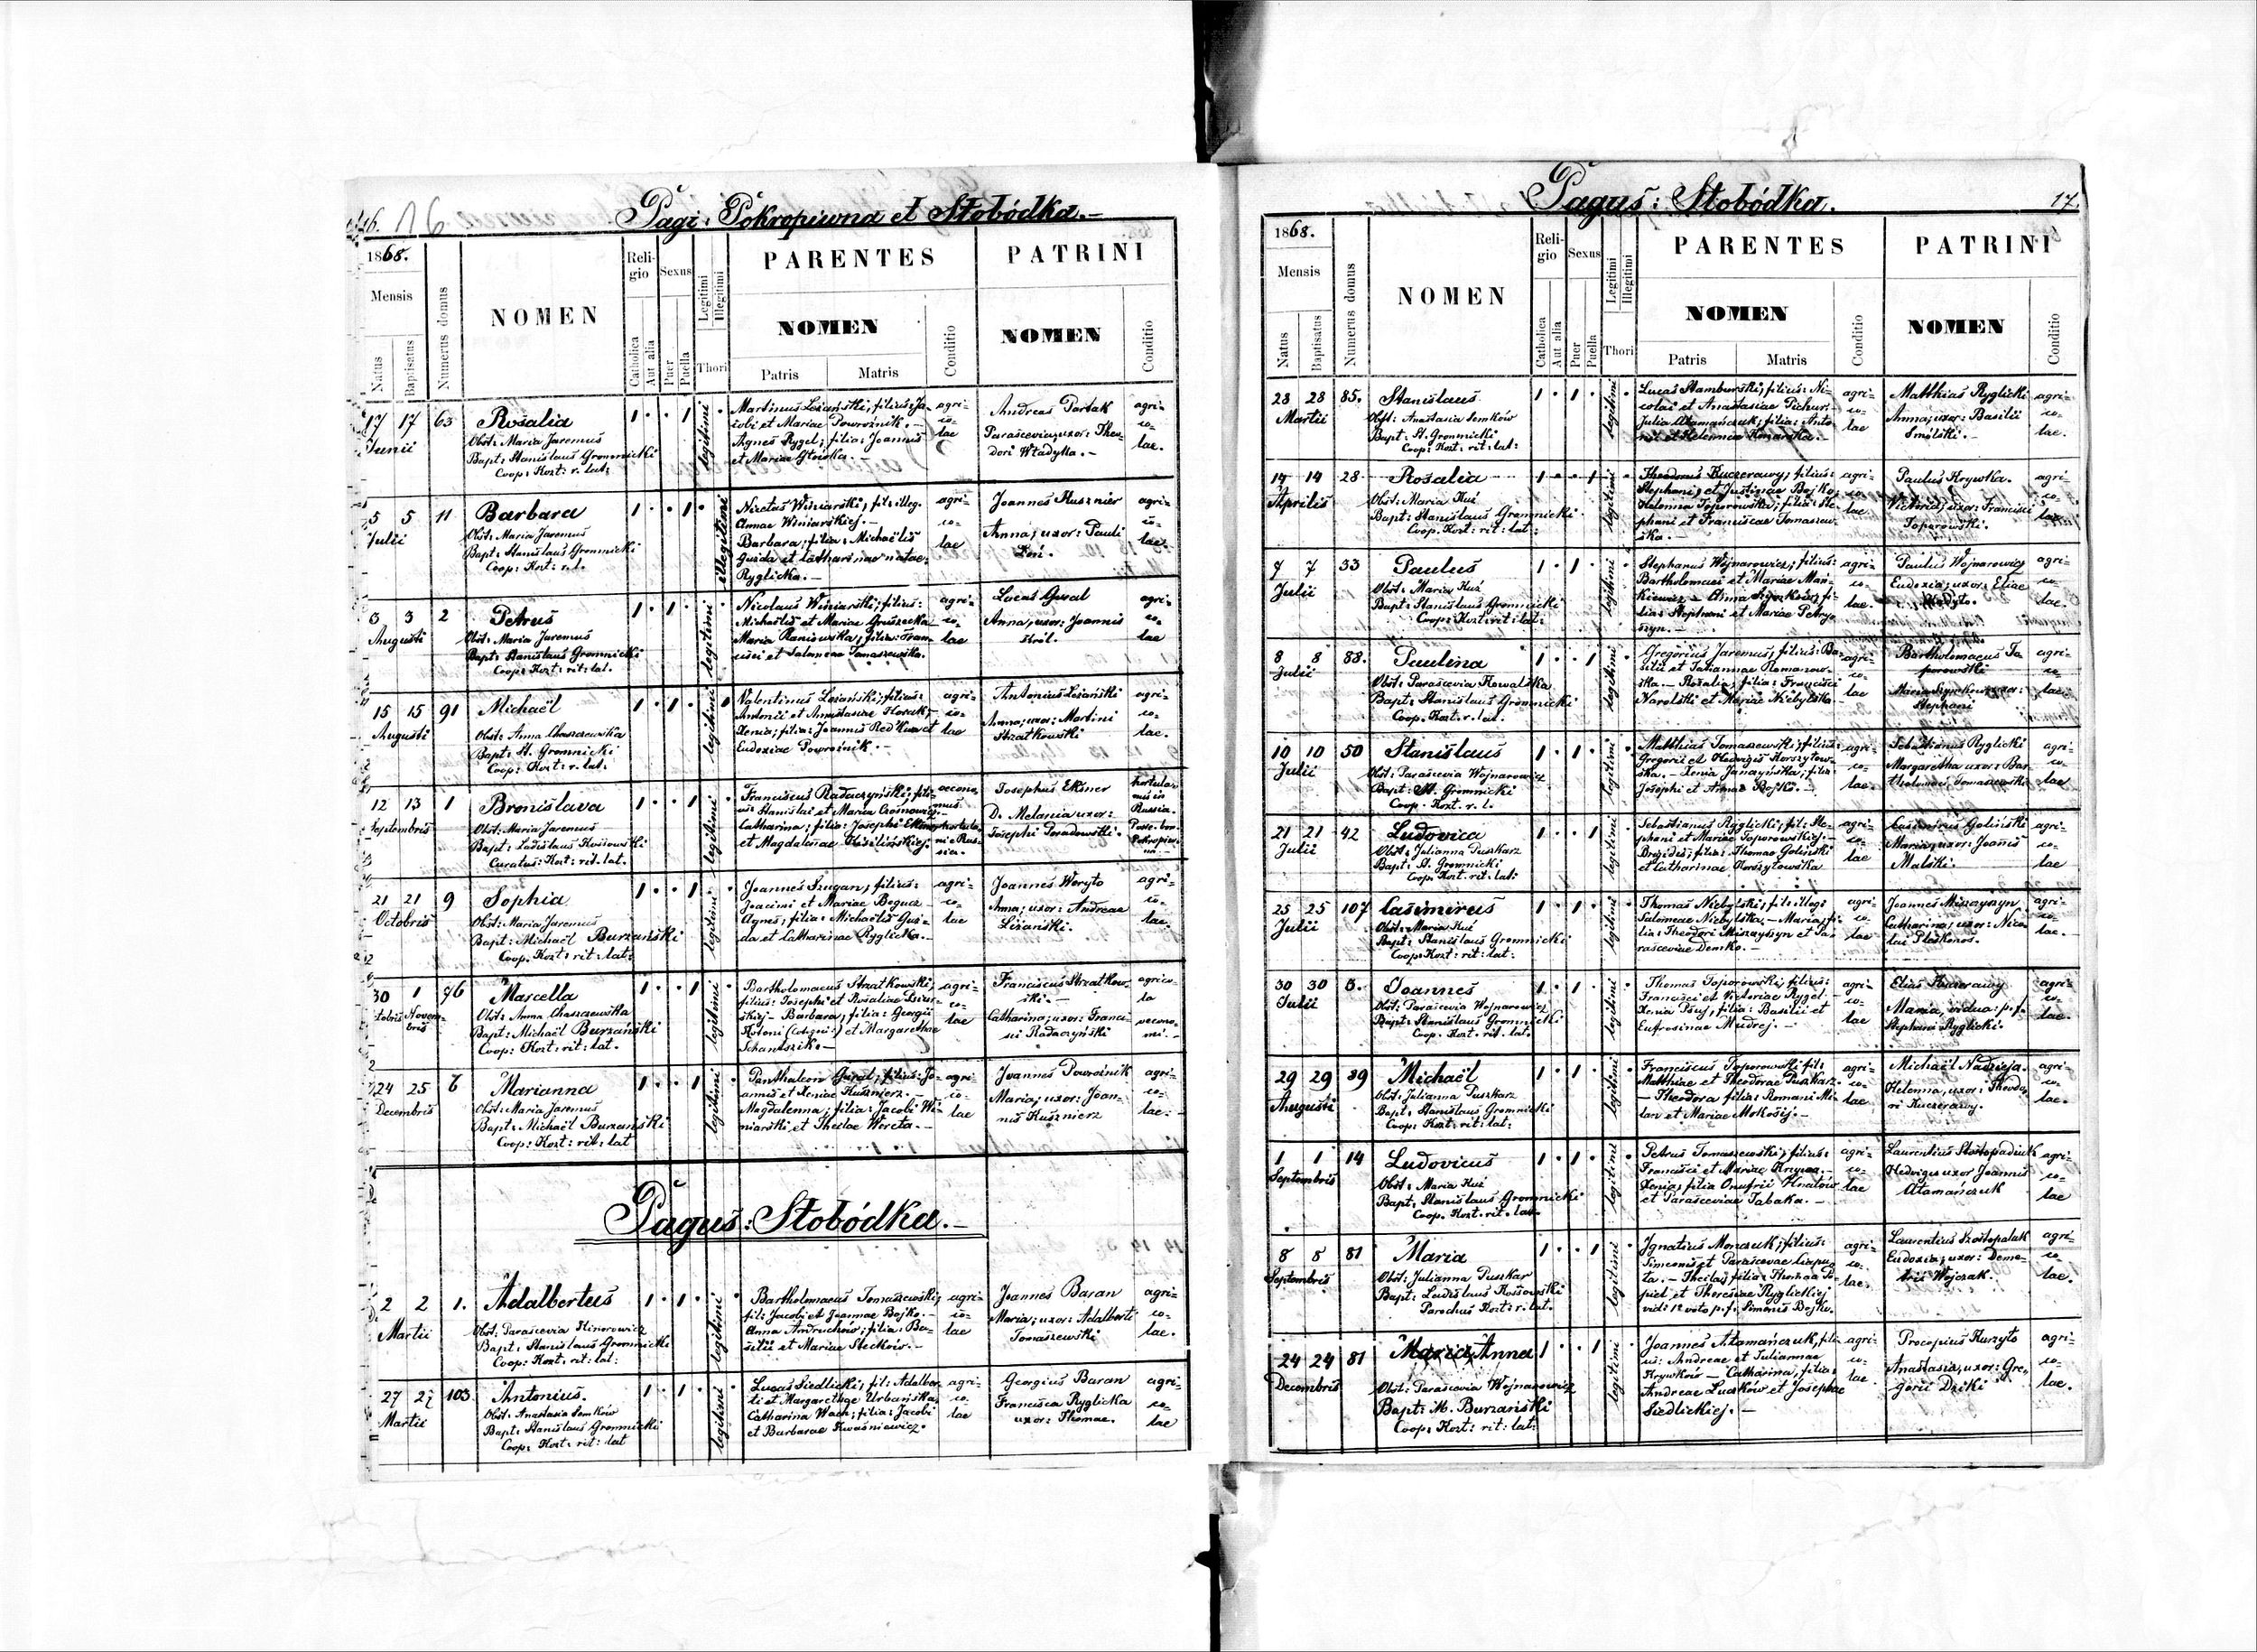 16. 16
Pagi: Pokropiwna et Słobódka.-
1868.
Mensis
Natus
Baptisatus
Numerus domus
NOMEN
Religio
Catholica
Aut alia
Sexus
Puer
Puella
Legitimi
Illegitimi
Thori
PARENTES
NOMEN
Patris
Matris
Conditio
PATRINI
NOMEN
Conditio
17 17 63 Rosalia
Junii
Obst: Maria Jaremus
Bapt: Stanislaus Gromnicki
Coop: Kozt: r. lat:
1 · · 1 legitimi
Martinus Leżański, filius: Ja-
cobi et Mariae Powroźnik.-
Agnes Rygel; filia: Joannis
et Mariae
agri-
co-
lae
Andreas Partak
Parascevia, uxor: Theo-
dori Władyka.-
agri-
co-
lae.
5 5 11 Barbara
Julii
Obst: Maria Jaremus
Bapt: Stanislaus Gromnicki
Coop: Kozt: r. l.
1 · · 1 illegitimi
Nicetas Winiarski, fil: illeg.
Annae Winiarskiej.-
Barbara; filia: Michaëlis
Guida et Catharinae natae
Ryglicka.-
agri-
co-
lae
Joannes Kusznier
Anna; uxor: Pauli
agri-
co-
lae.
3 3 2 Petrus
Augusti
Obst: Maria Jaremus
Bapt: Stanislaus Gromnicki
Coop: Kozt: rit: lat.
1 · 1 · legitimi
Nicolaus Winiarski; filius:
Michaëlis et Mariae Gruszecka
Maria Raniowska; filia: Fran-
cisci et Salomeae Tomaszewska.
agri-
co-
lae
Lucas Gural
Anna, uxor: Joannis
Król.
agri-
co-
lae
15 15 91 Michaël
Augusti
Obst: Anna Charszewska
Bapt: St. Gromnicki
Coop: Kozt: r. lat:
1 · 1 · legitimi
Valentinus Leżański; filius:
Antonii et Anastasiae Kozak;
Xenia; filia: Joannis Redkwa et
Eudoxiae Powroźnik.-
agri-
co-
lae
Antonius Leżański
Anna; uxor: Martini
Strzałkowski
agri-
co-
lae.
12 13 1 Bronislava
Septembris
Obst: Maria Jaremus
Bapt: Ladislaus Kossowski
Curatus: Kozt: rit. lat.
1 · · 1 legitimi
Franciscus Radaczyński; fili-
us Stanislai et Maria
Catharina; filia: Josephi Eksner
et Magdalenae
oecono-
mus
Josephus Eksner
D. Melania uxor:
Josephi Poradowski.
hortula-
nus in
Russia.
21 21 9 Sophia
Octobris
Obst: Maria Jaremus
Bapt: Michaël Burzański
Coop. Kozt: rit: lat:
1 · · 1 legitimi
Joannes Szugan; filius:
Joacimi et Mariae Begucz-
Agnes; filia: Michaëlis Gui-
da et Catharinae Ryglicka.-
agri-
co-
lae
Joannes Weryto
Anna; uxor: Andreae
Leżanski.
agri-
co-
lae.
30 1 76 Marcella
Novem-
bris
Obst: Anna Charszewska
Bapt: Michaël Burzański
Coop: Kozt: rit: lat.
1 · · 1 legitimi
Bartholomaeus Strzałkowski,
filius: Josephi et Rosaliae
Barbara; filia: Georgii
et Margarethae
agri-
co-
lae
Franciscus Strzałkow-
ski.-
Catharina; uxor: Franci-
sci Radaczyński
agrico-
la
oecono-
mi.-
24 25 6 Marianna
Decembris
Obst: Maria Jaremus
Bapt: Michaël Burzański
Coop: Kozt: rit: lat
1 · · 1 legitimi
Panthaleon Gural; filius: Jo-
annis et Xeniae Kusznierz.-
Magdalenna; filia: Jacobi Wi-
niarski et Theclae Wereta.-
agri-
co-
lae
Joannes Powroźnik
Maria; uxor: Joan-
nis Kusznierz
agri-
co-
lae.-
Pagus: Słobódka.-
2 2 1. Adalbertus
Martii
Obst: Parascevia
Bapt: Stanislaus Gromnicki
Coop: Kozt: rit: lat:
1 · 1 · legitimi
Bartholomaeus Tomaszewski;
fil: Jacobi et Joannae Bojko.-
Anna Andruchów; filia: Ba-
silii et Mariae Steckow.-
agri-
co-
lae
Joannes Baran
Maria; uxor: Adalberti
Tomaszewski
agri-
co-
lae.
27 27 103. Antonius.
Martii
Obst: Anastasia Semków
Bapt: Stanislaus Gromnicki
Coop: Kozt: rit: lat
1 · 1 · legitimi
Lucas Siedlicki; fil: Adalber-
ti et Margarethae Urbańska
Catharina Wach; filia: Jacobi
et Barbarae Kwaśniewicz.
agri-
co-
lae
Georgius Baran
Francisca Ryglicka
uxor: Thomae.
agri-
co-
lae
Pagus: Słobódka.
17.
1868.
Mensis
Natus
Baptisatus
Numerus domus
NOMEN
Religio
Catholica
Aut alia
Sexus
Puer
Puella
Legitimi
Illegitimi
Thori
PARENTES
NOMEN
Patris
Matris
Conditio
PATRINI
NOMEN
Conditio
28 28 85. Stanislaus
Martii
Obst: Anastasia Semków
Bapt: St. Gromnicki
Coop: Kozt: rit: lat:
1 · 1 · legitimi
Lucas Stamburski; filius: Ni-
colai et Anastasiae Pichur.
Julia Atamańczuk; filia: Anto-
nii et Helennae
agri-
co-
lae
Matthias Ryglicki
Anna; uxor: Basilii
Smólski.-
agri-
co-
lae.
14 14 28 Rosalia
Aprilis
Obst: Maria Kuź
Bapt: Stanislaus Gromnicki
Coop. Kozt: rit: lat.
1 · · 1 legitimi
Theodorus Kuczerawy; filius:
Stephani et Justinae Bojko,
Helenna Toporowska; filia: Ste-
phani et Franciscae Tomaszew-
ska.-
agri-
co-
lae
Paulus Krywka.
Victoria; uxor: Francisci
Toporowski.
agri-
co-
lae.
7 7 33 Paulus
Julii
Obst: Maria Kuź
Bapt: Stanislaus Gromnicki
Coop: Kozt: rit: lat:
1 · 1 · legitimi
Stephanus Wojnarowicz; filius:
Bartholomaei et Mariae Man-
kiewicz - Anna
lia: Stephani et Mariae Petry-
szyn.-
agri-
co-
lae.
Paulus Wojnarowicz
Eudoxia; uxor: Eliae
agri-
co-
lae.
8 8 88. Paulina
Julii
Obst: Parascevia Kowalska
Bapt: Stanislaus Gromnicki
Coop. Kozt. r. lat.
1 · · 1 legitimi
Gregorius Jaremus; filius: Ba-
silii et Tatiannae Romanow-
ska.- Rosalia; filia: Francisci
Narolski et Mariae Niebylska.
agri-
co-
lae
Bartholomaeus To-
porowski
Maria
Stephani
agri-
co-
lae.
10 10 50 Stanislaus
Julii
Obst: Parascevia Wojnarowicz
Bapt: St. Gromnicki
Coop. Kozt. r. l.
1 · 1 · legitimi
Matthias Tomaszewski; filius:
Gregorii et Hedwigis Korszytow-
ska.- Xenia Janczyńska; filia:
Josephi et Annae Bojko.-
agri-
co-
lae.
Sebastianus Ryglicki
Margaretha uxor: Bar-
tholomaei Tomaszewski
agri-
co-
lae
21 21 42 Ludovica
Julii
Obst: Julianna Puszkarz
Bapt: St. Gromnicki
Coop: Kozt. rit: lat:
1 · · 1 legitimi
Sebastianus Ryglicki; fil: Ste-
phani et Mariae Toporowskiej.-
Brigidis; filia: Thomae Goliński
et Catharinae Korszytowska
agri-
co-
lae
Casimirus Goliński
Maria; uxor: Joanis
Malski.
agri-
co-
lae
25 25 107 Casimirus
Julii
Obst: Maria Kuź
Bapt: Stanislaus Gromnicki
Coop: Kozt: rit: lat:
1 · 1 · legitimi
Thomas Niebylski; fil: illeg:
Salomeae Niebylska,- Maria; fi-
lia: Theodori Miszczyszyn et Pa-
rasceviae Demko.-
agri-
co-
lae
Joannes Miszczyszyn
Catharina; uxor: Nico-
lai Płaskonos.
agri-
co-
lae.
30 30 3. Joannes
Julii
Obst: Parascevia Wojnarowicz
Bapt: Stanislaus Gromnicki
Coop. Kozt. rit. lat.
1 · 1 · legitimi
Thomas Toporowski; filius:
Francisci et Victoriae Rygel.
Xenia Psuj, filia: Basilii et
Eufrosinae Mudrej.-
agri-
co-
lae
Elias Kuczerawy
Maria, vidua: p. f.
Stephani Ryglicki.
agri-
co-
lae.
29 29 39 Michaël
Augusti
Obst: Julianna Puszkarz
Bapt: Stanislaus Gromnicki
Coop: Kozt: rit: lat:
1 · 1 · legitimi
Franciscus Toporowski fil:
Matthiae et Theodorae Puszkarz.
- Theodora filia: Romani Mi-
lan et Mariae Mokosij.-
agri-
co-
lae
Michaël Nadzieja.
Helenna, uxor: Theodo-
ri Kuczerawy.
agri-
co-
lae.
1 1 14 Ludovicus
Septembris
Obst: Maria Kuź
Bapt. Stanislaus Gromnicki
Coop. Kozt. rit. lat.
1 · 1 · legitimi
Petrus Tomaszewski; filius:
Francisci et Mariae
Xenia; filia Onufrii Hnatów
et Parasceviae Tabaka.-
agri-
co-
lae
Laurentius
Hedvigis uxor Joannis
Atamańczuk
agri-
co-
lae
8 8 81 Maria
Septembris
Obst: Julianna Puszkar
Bapt: Ladislaus Kossowski
Parochus Kozt: r. lat.
1 · · 1 legitimi
Ignatius Monczuk; filius:
Simeonis et Parasceviae
ta.- Thecla; filia: Thomae Po-
piel et Theresiae Ryglickiej
vid: 1º voto p. f. Simonis Bojko.
agri-
co-
lae.
Laurentius
Eudoxia; uxor: Deme-
trii Wojczak.
agri-
co-
lae.
24 24 81 Maria Anna
Decembris
Obst: Parascevia Wojnarowicz
Bapt: M. Burzański
Coop: Kozt: rit: lat:
1 · · 1 legitimi
Joannes Atamańczuk, fili-
us: Andreae et Juliannae
Krywków - Catharina; filia:
Andreae Luczków et Josephae
Siedlickiej.-
agri-
co-
lae
Procopius Kurzyto
Anastasia, uxor: Gre-
gorii Dziki
agri-
co-
lae.